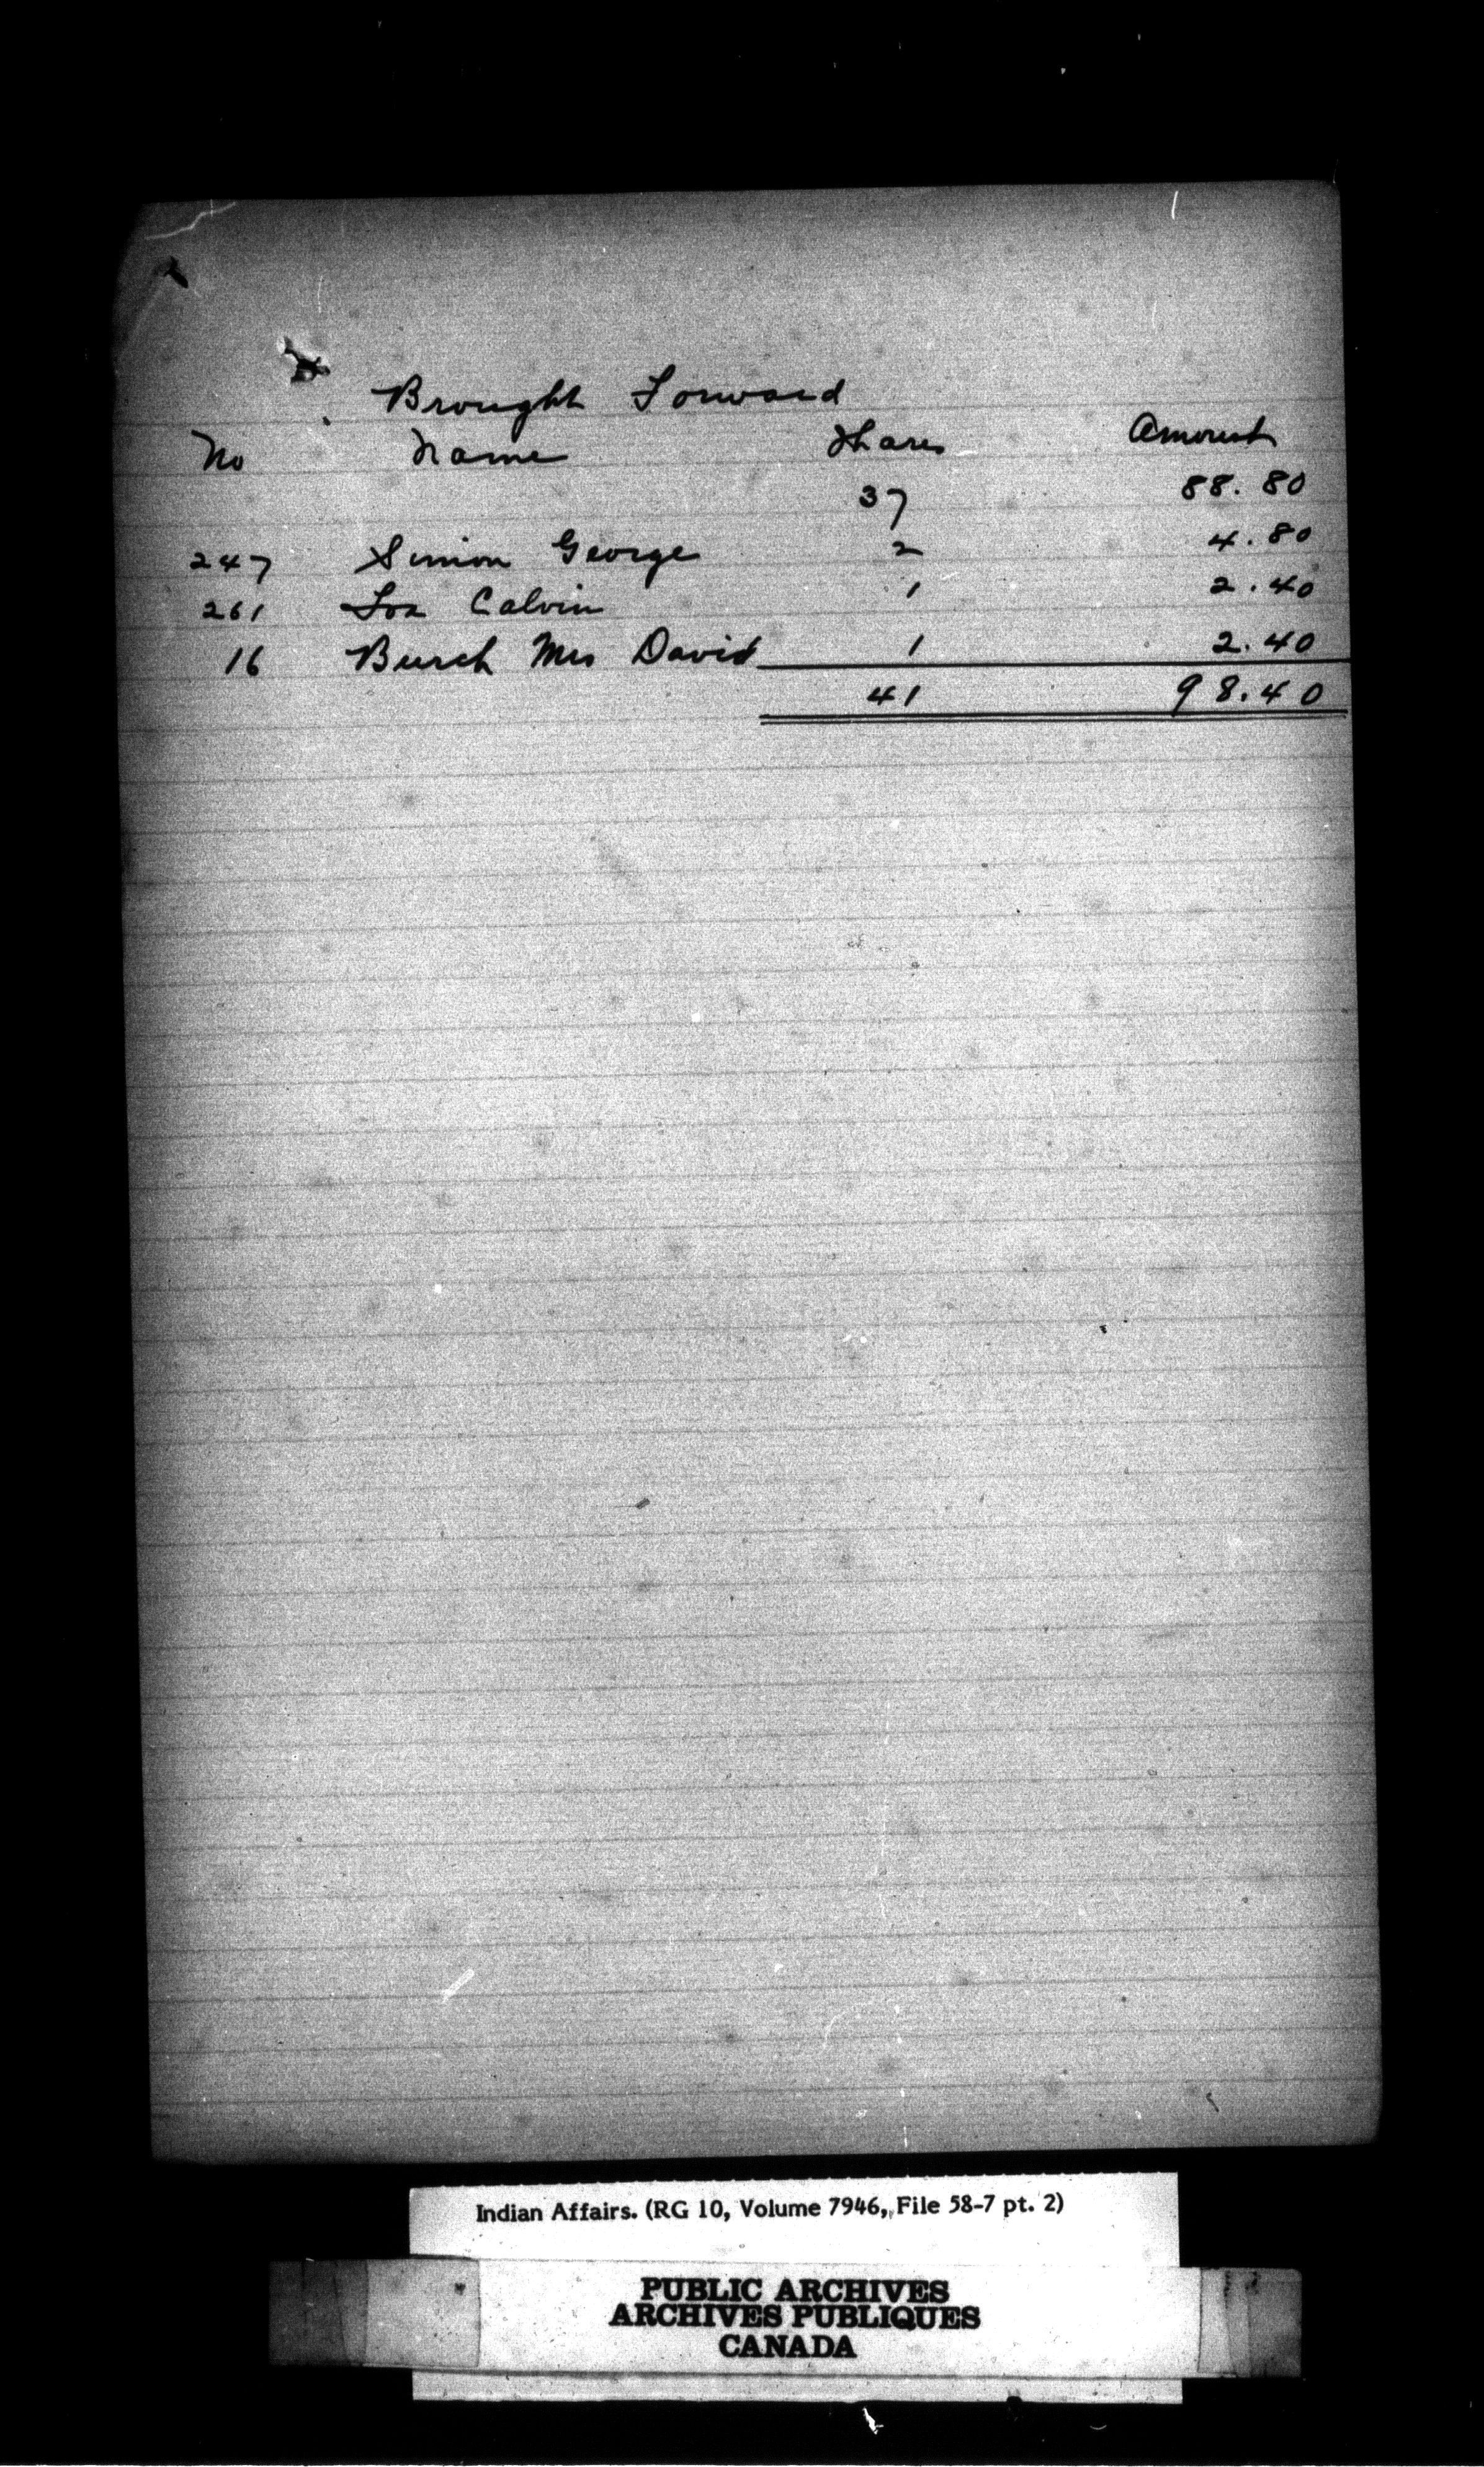 Brought Forward
No Name Shares Amount
37 88.80
247 Simon George 2 4.80
261 Calvin 1 2.40
16 Burch Mrs David 1 2.40
41 98.40
Indian Affairs. (RG 10, Volume 7946, File 58-7 pt. 2)
PUBLIC ARCHIVES
ARCHIVES PUBLIQUES
CANADA